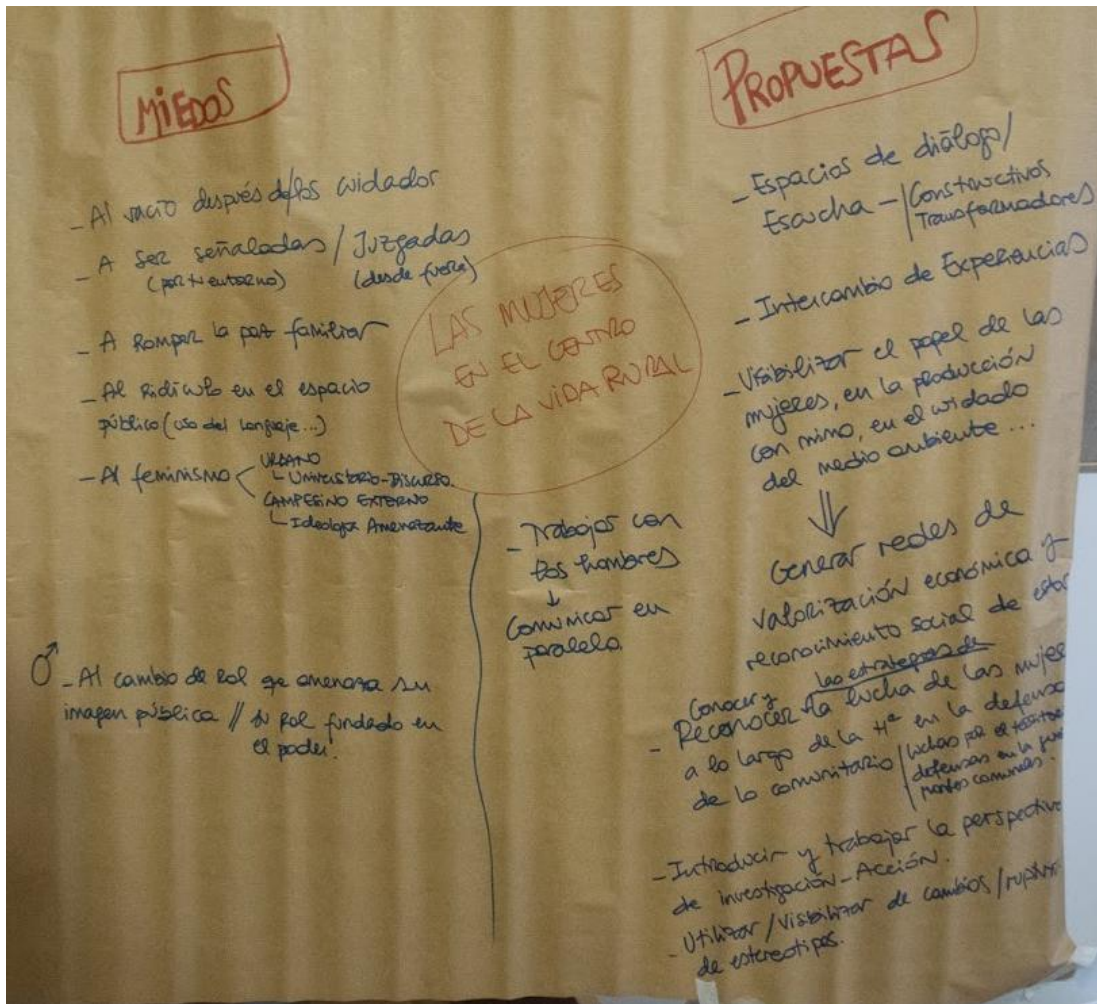 MIEDOS
- Al vacío después de/los cuidador
- A ser señaladas / Juzgadas
(por tu entorno) (desde fuera)
- A romper la paz familiar
- Al ridículo en el espacio
público (uso del lenguaje...)
- Al feminismo < URBANO
Universitario - Discurso.
CAMPESINO EXTERNO
Ideología Amenazante
♂ - Al cambio de rol qe amenaza su
imagen pública // su rol fundado en
el poder!
LAS MUJERES
EN EL CENTRO
DE LA VIDA RURAL
- Trabajar con
los hombres
↓
Comunicar en
paralelo.
PROPUESTAS
- Espacios de diálogo/
Escucha - / Constructivos
Transformadores
- Intercambio de Experiencias
- Visibilizar el papel de las
mujeres, en la producción
con mimo, en el cuidado
del medio ambiente ...
⇓
Generar redes de
valorización económica y
reconocimiento social de
Conocer y las estrategias de
- Reconocer la lucha de las
a lo largo de la Hª en la defensa
de lo comunitario / luchas por el
defensas en la
montes comunales.
- Introducir y trabajar la
de investigación - Acción.
- Utilizar / Visibilizar de cambios /
de estereotipos.